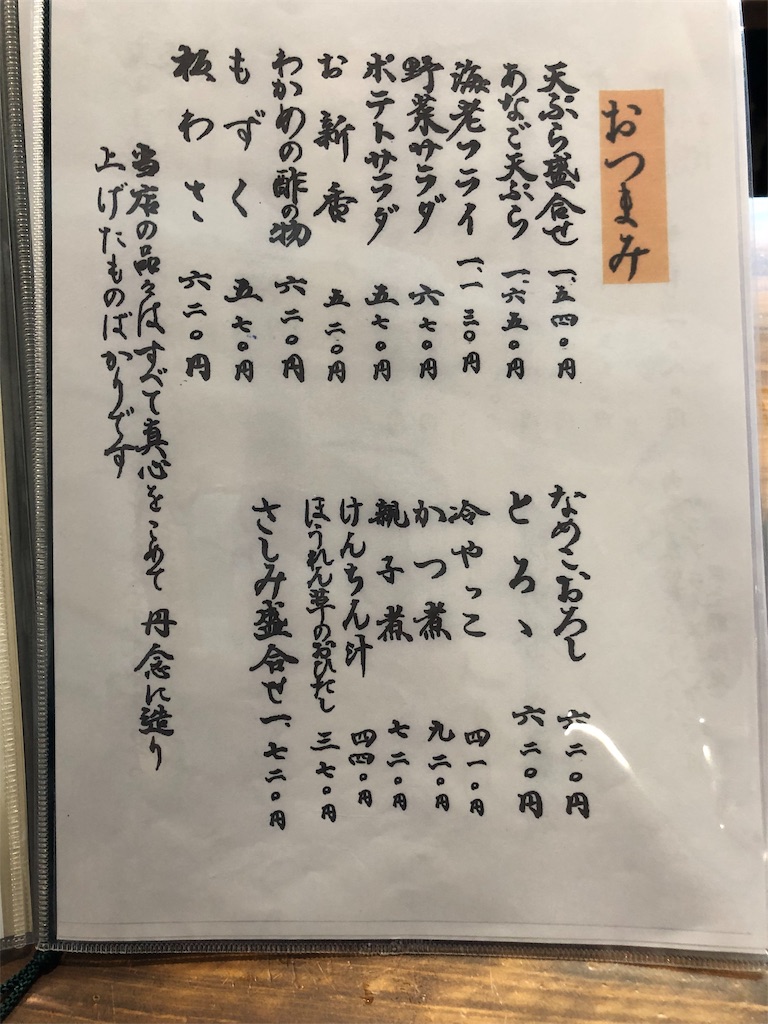 おつまみ
天ぷら盛合せ 一、五四〇円
あなご天ぷら 一、六五〇円
海老フライ 一、一三〇円
野菜サラダ 六七〇円
ポテトサラダ 五七〇円
お新香 五二〇円
わかめの酢の物 六二〇円
もずく 五七〇円
板わさ 六二〇円
なめこおろし 六二〇円
とろゝ 六二〇円
冷やっこ 四一〇円
かつ煮 九二〇円
親子煮 七二〇円
けんちん汁 四四〇円
ほうれん草のおひたし 三七〇円
さしみ盛合せ 一、七二〇円
当店の品々はすべて真心をこめて 丹念に造り
上げたものばかりです